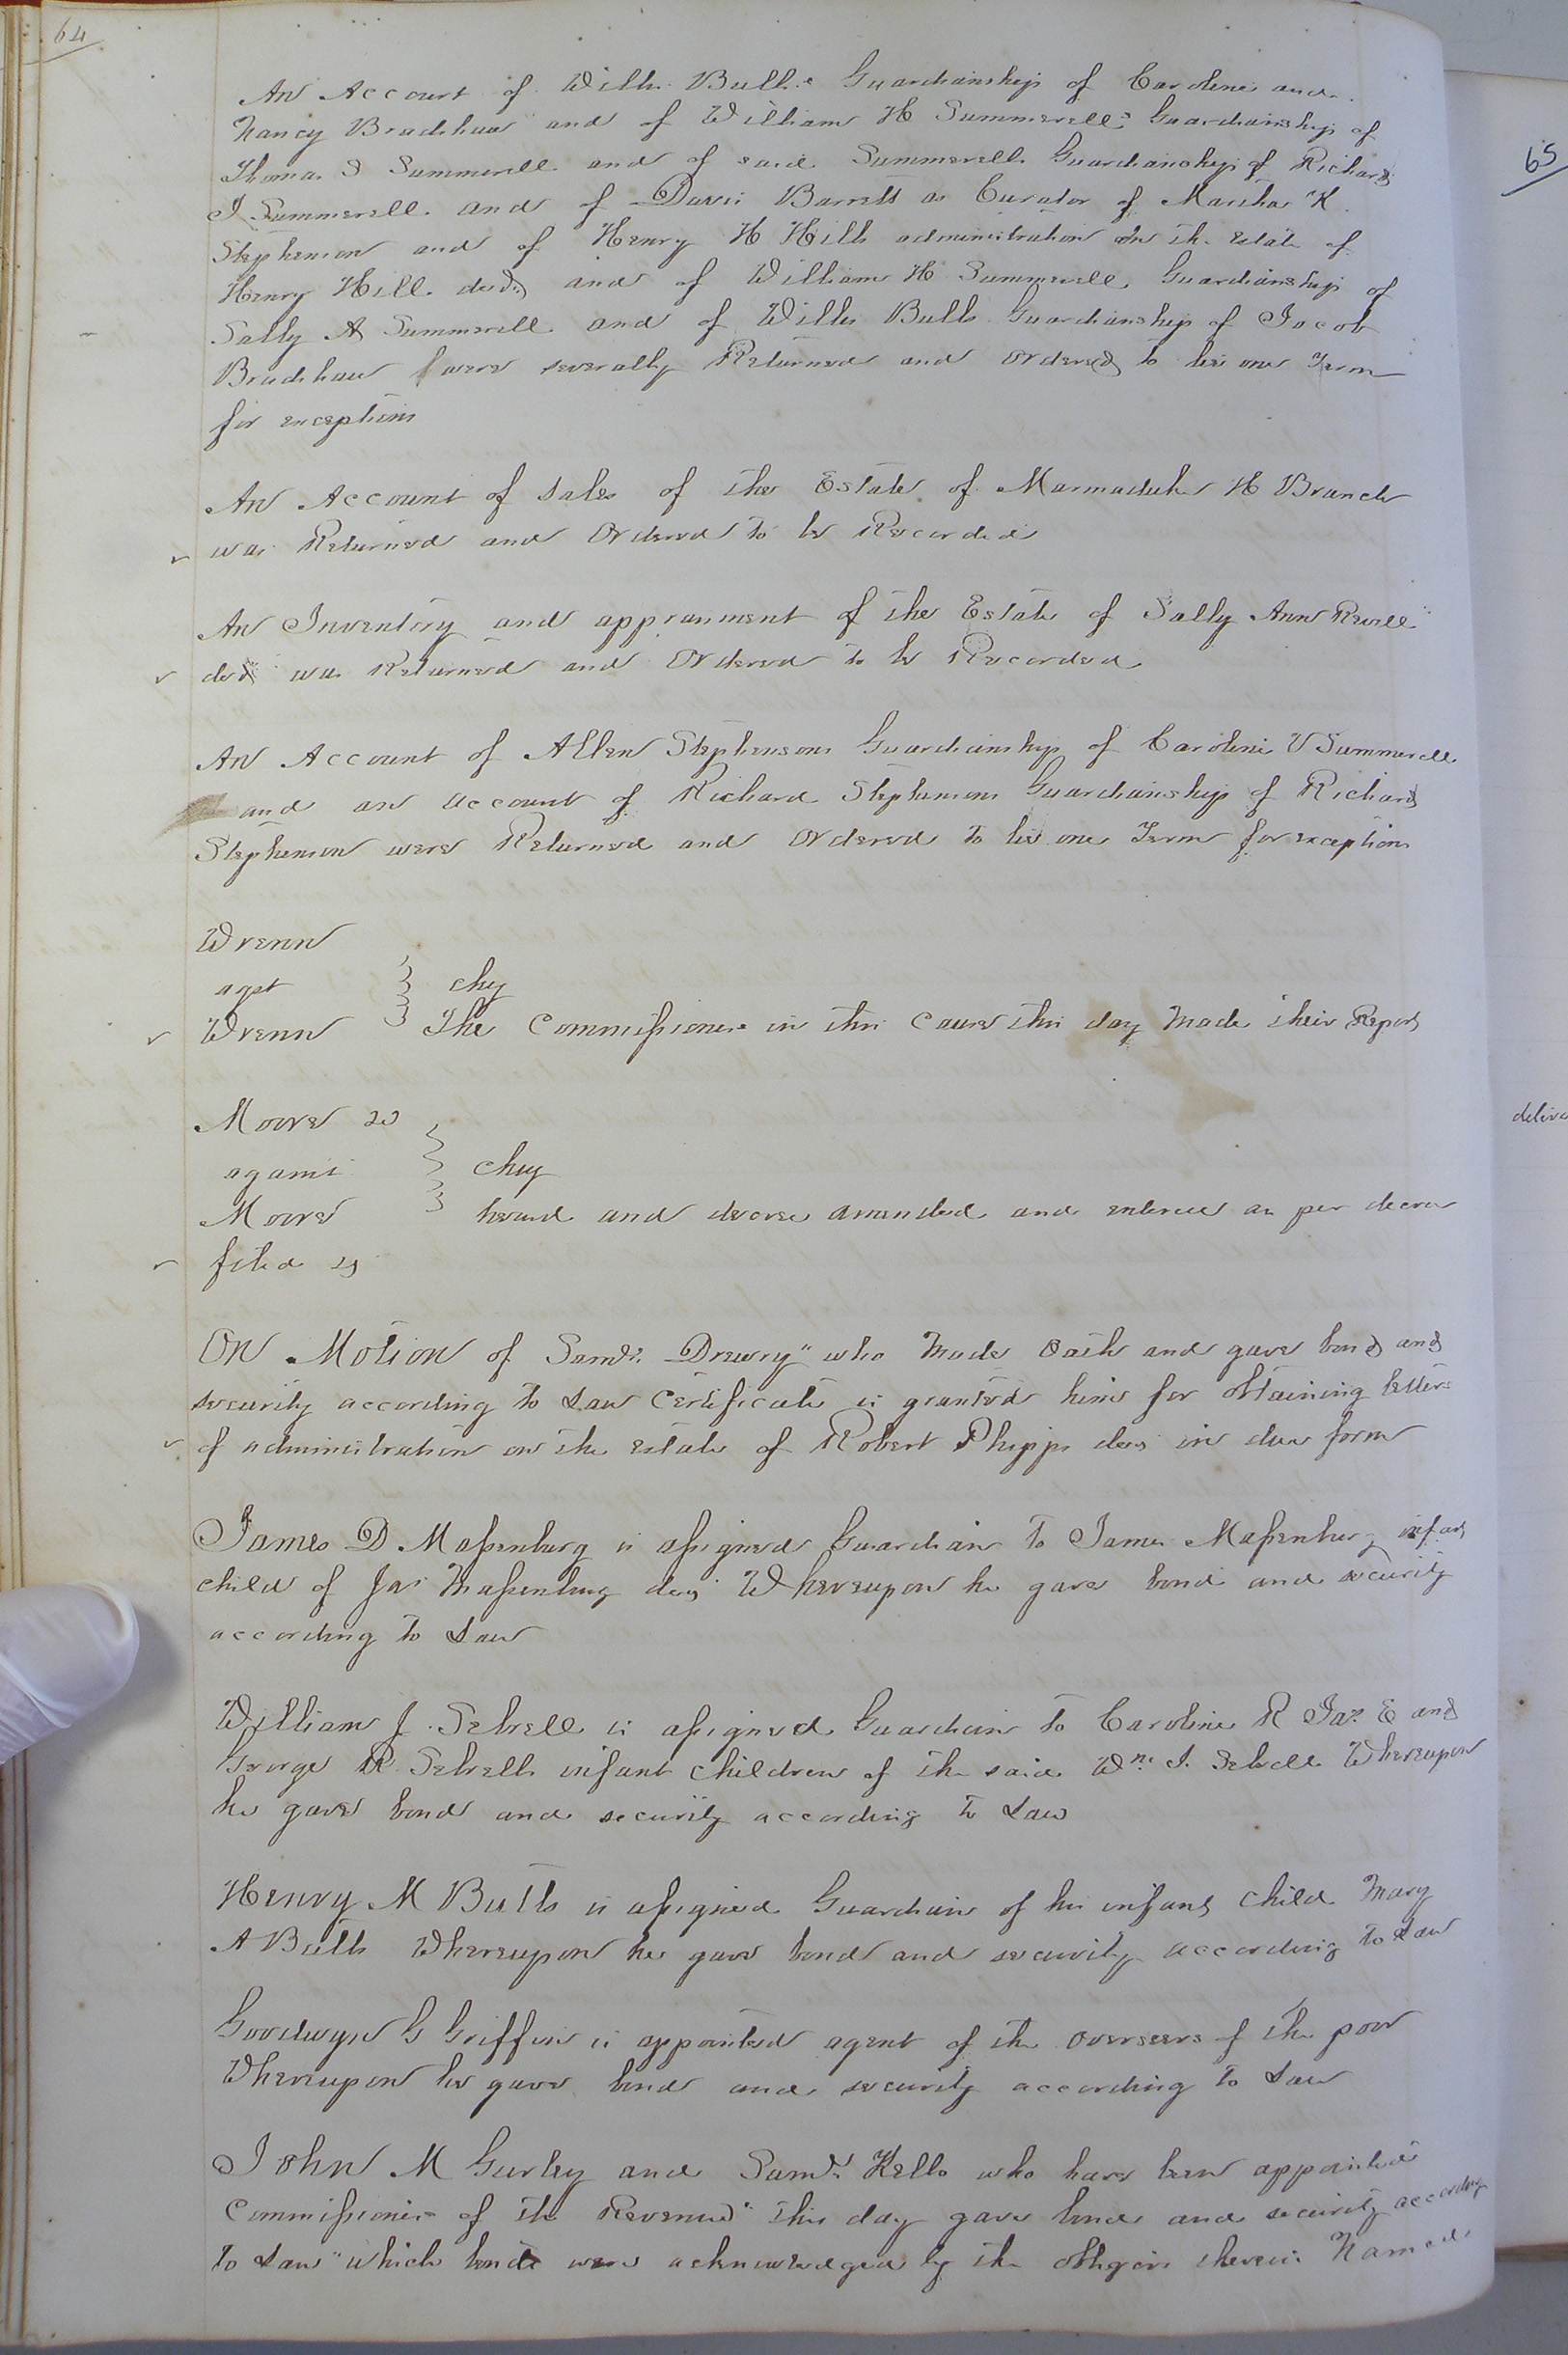 64
An Account of Willis Bulls Guardianship of Caroline and
Nancy Bradshaw and of William H Summerells Guardianship of
Thomas S Summerell and of said Summerells Guardianship of Richard
J Summerell and of Davis Barretts as Curator of Martha K
Stephenson and of Henry H Hills administration on the Estate of
Henry Hill decd and of William H Summerell Guardianship of
Sally A Summerell and of Willis Bulls Guardianship of Jacob
Bradshaw were severally Returned and ordered to lie one Term
for exceptions
An Account of Sales of the Estate of Marmaduke H Branch
was Returned and Ordered to be Recorded
An Inventory and appraisment of the Estate of Sally Ann Revell
decd was Returned and Ordered to be Recorded
An Account of Allen Stephensons Guardianship of Caroline V Summerell
and an account of Richard Stephensons Guardianship of Richard
Stephenson were Returned and Ordered to lie one Term for exceptions
Wrenn
agst
chy
Wrenn The Commissioners in this cause this day made their Report
Moore
against
chy
Moore heard and decree amended and entered as per decree
filed
On Motion of Saml. Drewry who made oath and gave bond and
security according to Law Certificate is granted him for obtaining letters
of administration on the estate of Robert Phipps decd in due form
James D Massenburg is assigned Guardian to James Massenburg infant
child of Jas Massenburg decd Whereupon he gave bond and security
according to Law
William J. Sebrell is assigned Guardian to Caroline R Jas. E and
George R Sebrell infant children of the said Wm. J. Sebrell Whereupon
he gave bond and security according to Law
Henry M Butts is assigned Guardian of his infant child Mary
A Butts Whereupon he gave bond and security according to Law
Goodwyn G Griffin is appointed agent of the overseers of the poor
Whereupon he gave bond and security according to Law
John M Gurley and Saml. Kello who have been appointed
Commissioners of the Revenue this day gave bonds and security according
to Law which bonds were acknowledged by the obligors therein Named
65